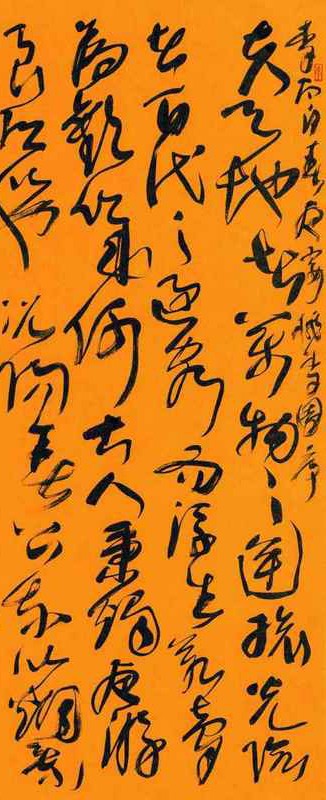 李太白春夜宴桃李園序
夫天地者萬物之逆旅光陰
者百代之過客而浮生若夢
為歡幾何古人秉燭夜游
良有以也況陽春召我以煙景